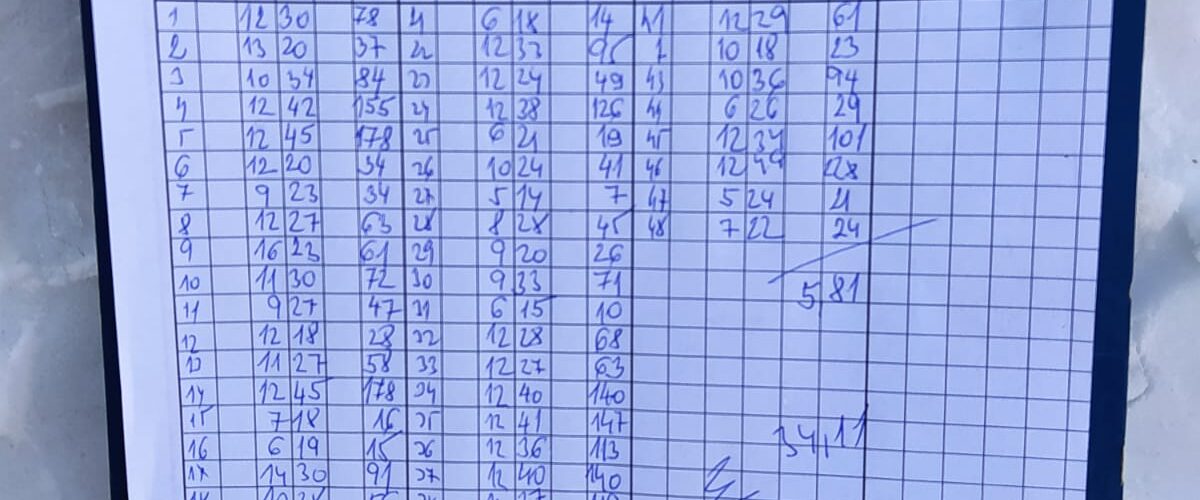 1 12 30 78 21 6 18 14 41 12 29 61
2 13 20 37 22 12 33 95 10 18 23
3 10 34 84 23 12 24 49 43 10 36 94
4 12 42 155 24 12 38 126 44 6 26 29
5 12 45 178 25 6 21 19 45 12 34 101
6 12 20 34 26 10 24 41 46 12
7 9 23 34 27 5 14 7 47 5 24 21
8 12 27 63 28 8 28 45 48 7 22 24
9 16 23 61 29 9 20 26
10 11 30 72 30 9 33 71
5,81
11 9 27 47 31 6 15 10
12 12 18 28 32 12 28 68
13 11 27 58 33 12 27 63
14 12 45 178 34 12 40 140
15 7 18 16 35 12 41 147
34,11
16 6 19 15 36 12 36 113
17 14 30 91 37 12 40 140